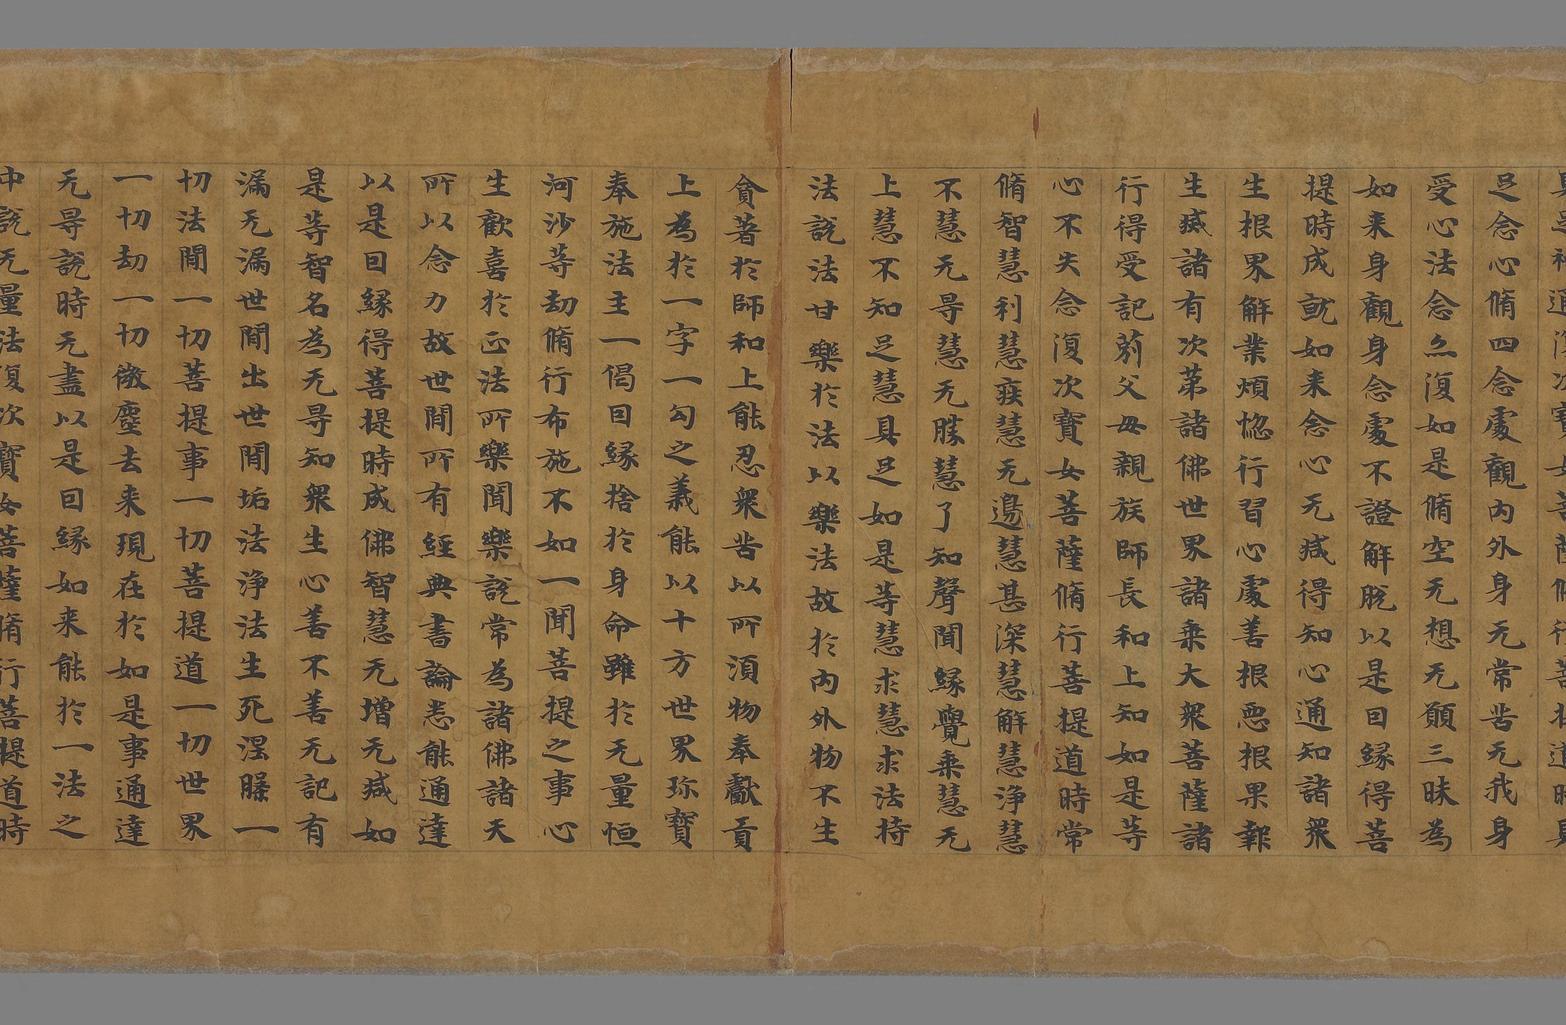 具足神通復次寶女菩薩脩行菩提道時具
足念心脩四念處觀内外身无常苦无我身
受心法念亦復如是脩空无想无願三昧為
如来身觀身念處不證解脱以是因緣得菩
提時成就如来念心无减得知心通知諸衆
生根界解業煩惚行習心處善根惡根果報
生滅諸有次苐諸佛世界諸乗大衆菩薩諸
行得受記莂父母親族師長和上知如是等
心不失念復次寶女菩薩脩行菩提道時常
脩智慧利慧疾慧无邊慧甚深慧解慧淨慧
不慧无㝵慧无勝慧了知聲聞緣覺乗慧无
上慧不知足慧具足如是等慧求慧求法持
法說法甘樂於法以樂法故於内外物不生
貪著於師和上能忍衆苦以所湏物奉獻貢
上為於一字一句之義能以十方世界珎寶
奉施法主一偈因緣捨於身命雖於无量恒
河沙等劫脩行布施不如一聞菩提之事心
生歡喜於正法所樂聞樂說常為諸佛諸天
所以念力故世間所有經典書論悉能通達
以是因緣得菩提時成佛智慧无增无减如
是等智名為无㝵知衆生心善不善无記有
漏无漏世間出世間垢法淨法生死涅槃一
切法聞一切菩提事一切菩提道一切世界
一切劫一切微塵去来現在於如是事通達
无㝵說時无盡以是因緣如来能於一法之
中說无量法復次寶女菩薩脩行菩提道時